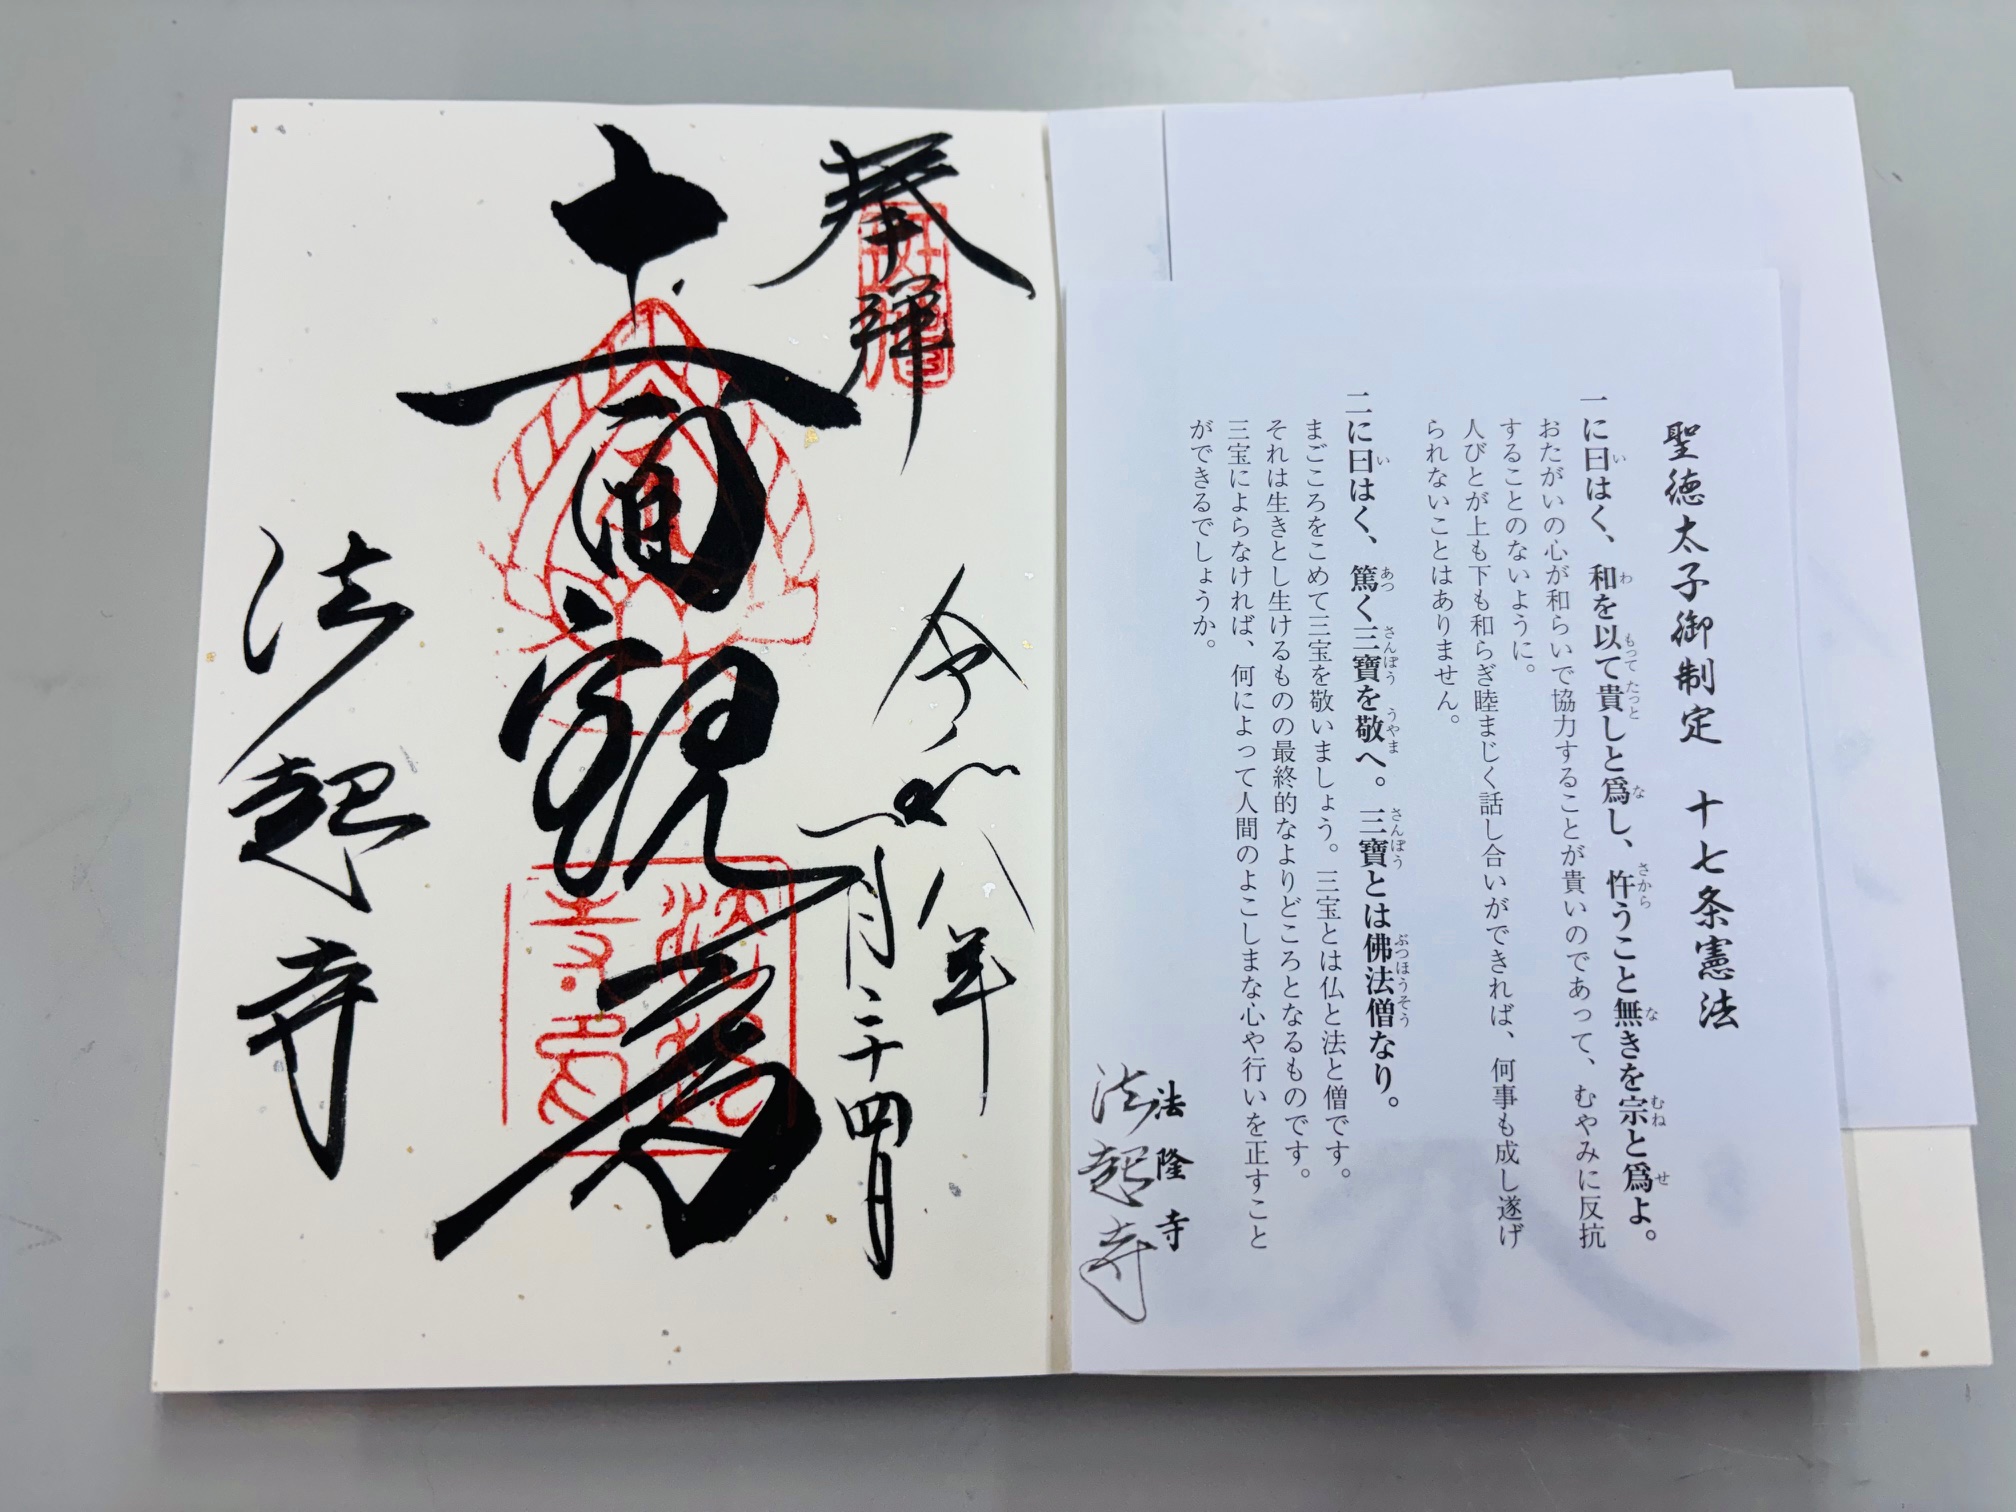 聖徳太子御制定　十七条憲法
一に曰はく、和を以て貴しと爲し、忤うこと無きを宗と爲よ。
おたがいの心が和らいで協力することが貴いのであって、むやみに反抗
することのないように。
人びとが上も下も和らぎ睦まじく話し合いができれば、何事も成し遂げ
られないことはありません。
二に曰はく、篤く三寶を敬へ。三寶とは佛法僧なり。
まごころをこめて三宝を敬いましょう。三宝とは仏と法と僧です。
それは生きとし生けるものの最終的なよりどころとなるものです。
三宝によらなければ、何によって人間のよこしまな心や行いを正すこと
ができるでしょうか。
法隆寺
法起寺
奉拝
令和八年
一月二十四日
十一面観音
法起寺